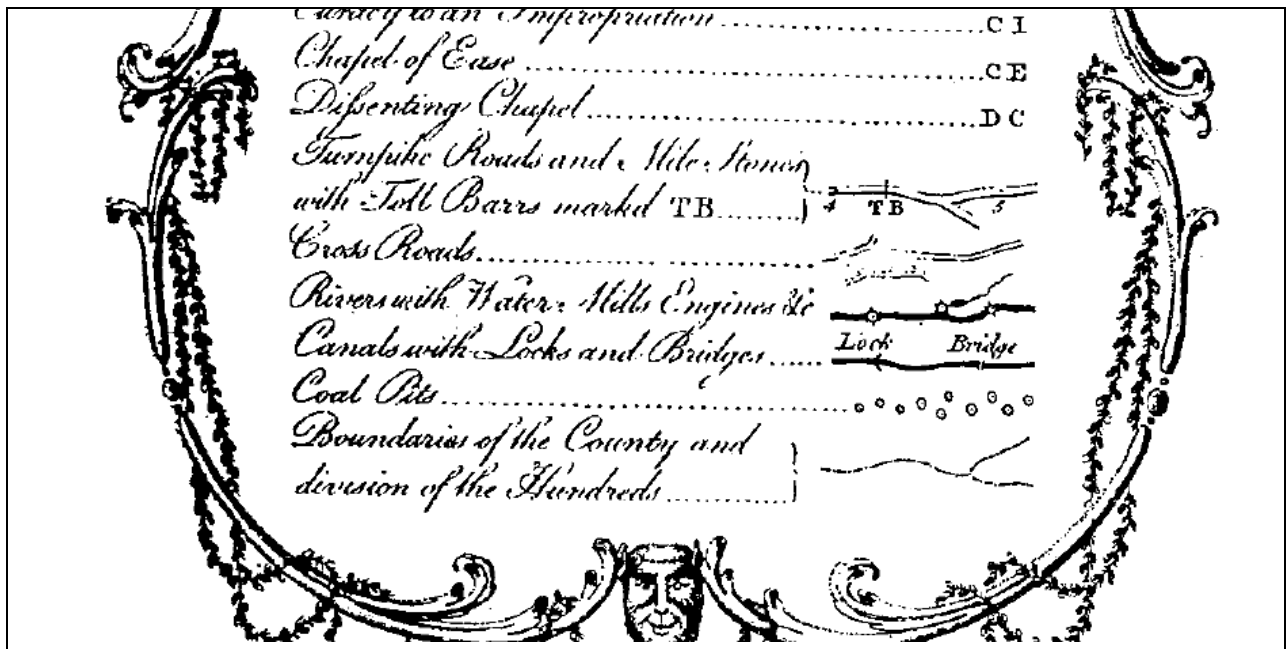 Curacy to an Impropriation ........ CI
Chapel of Ease ........ CE
Dissenting Chapel ........ DC
Turnpike Roads and Mile Stones
with Toll Barrs markd TB ........ 4 TB 5
Cross Roads ........
Rivers with Water Mills Engines &c
Lock Bridge
Canals with Locks and Bridges ......
Coal Pits ........
Boundaries of the County and
division of the Hundreds ........